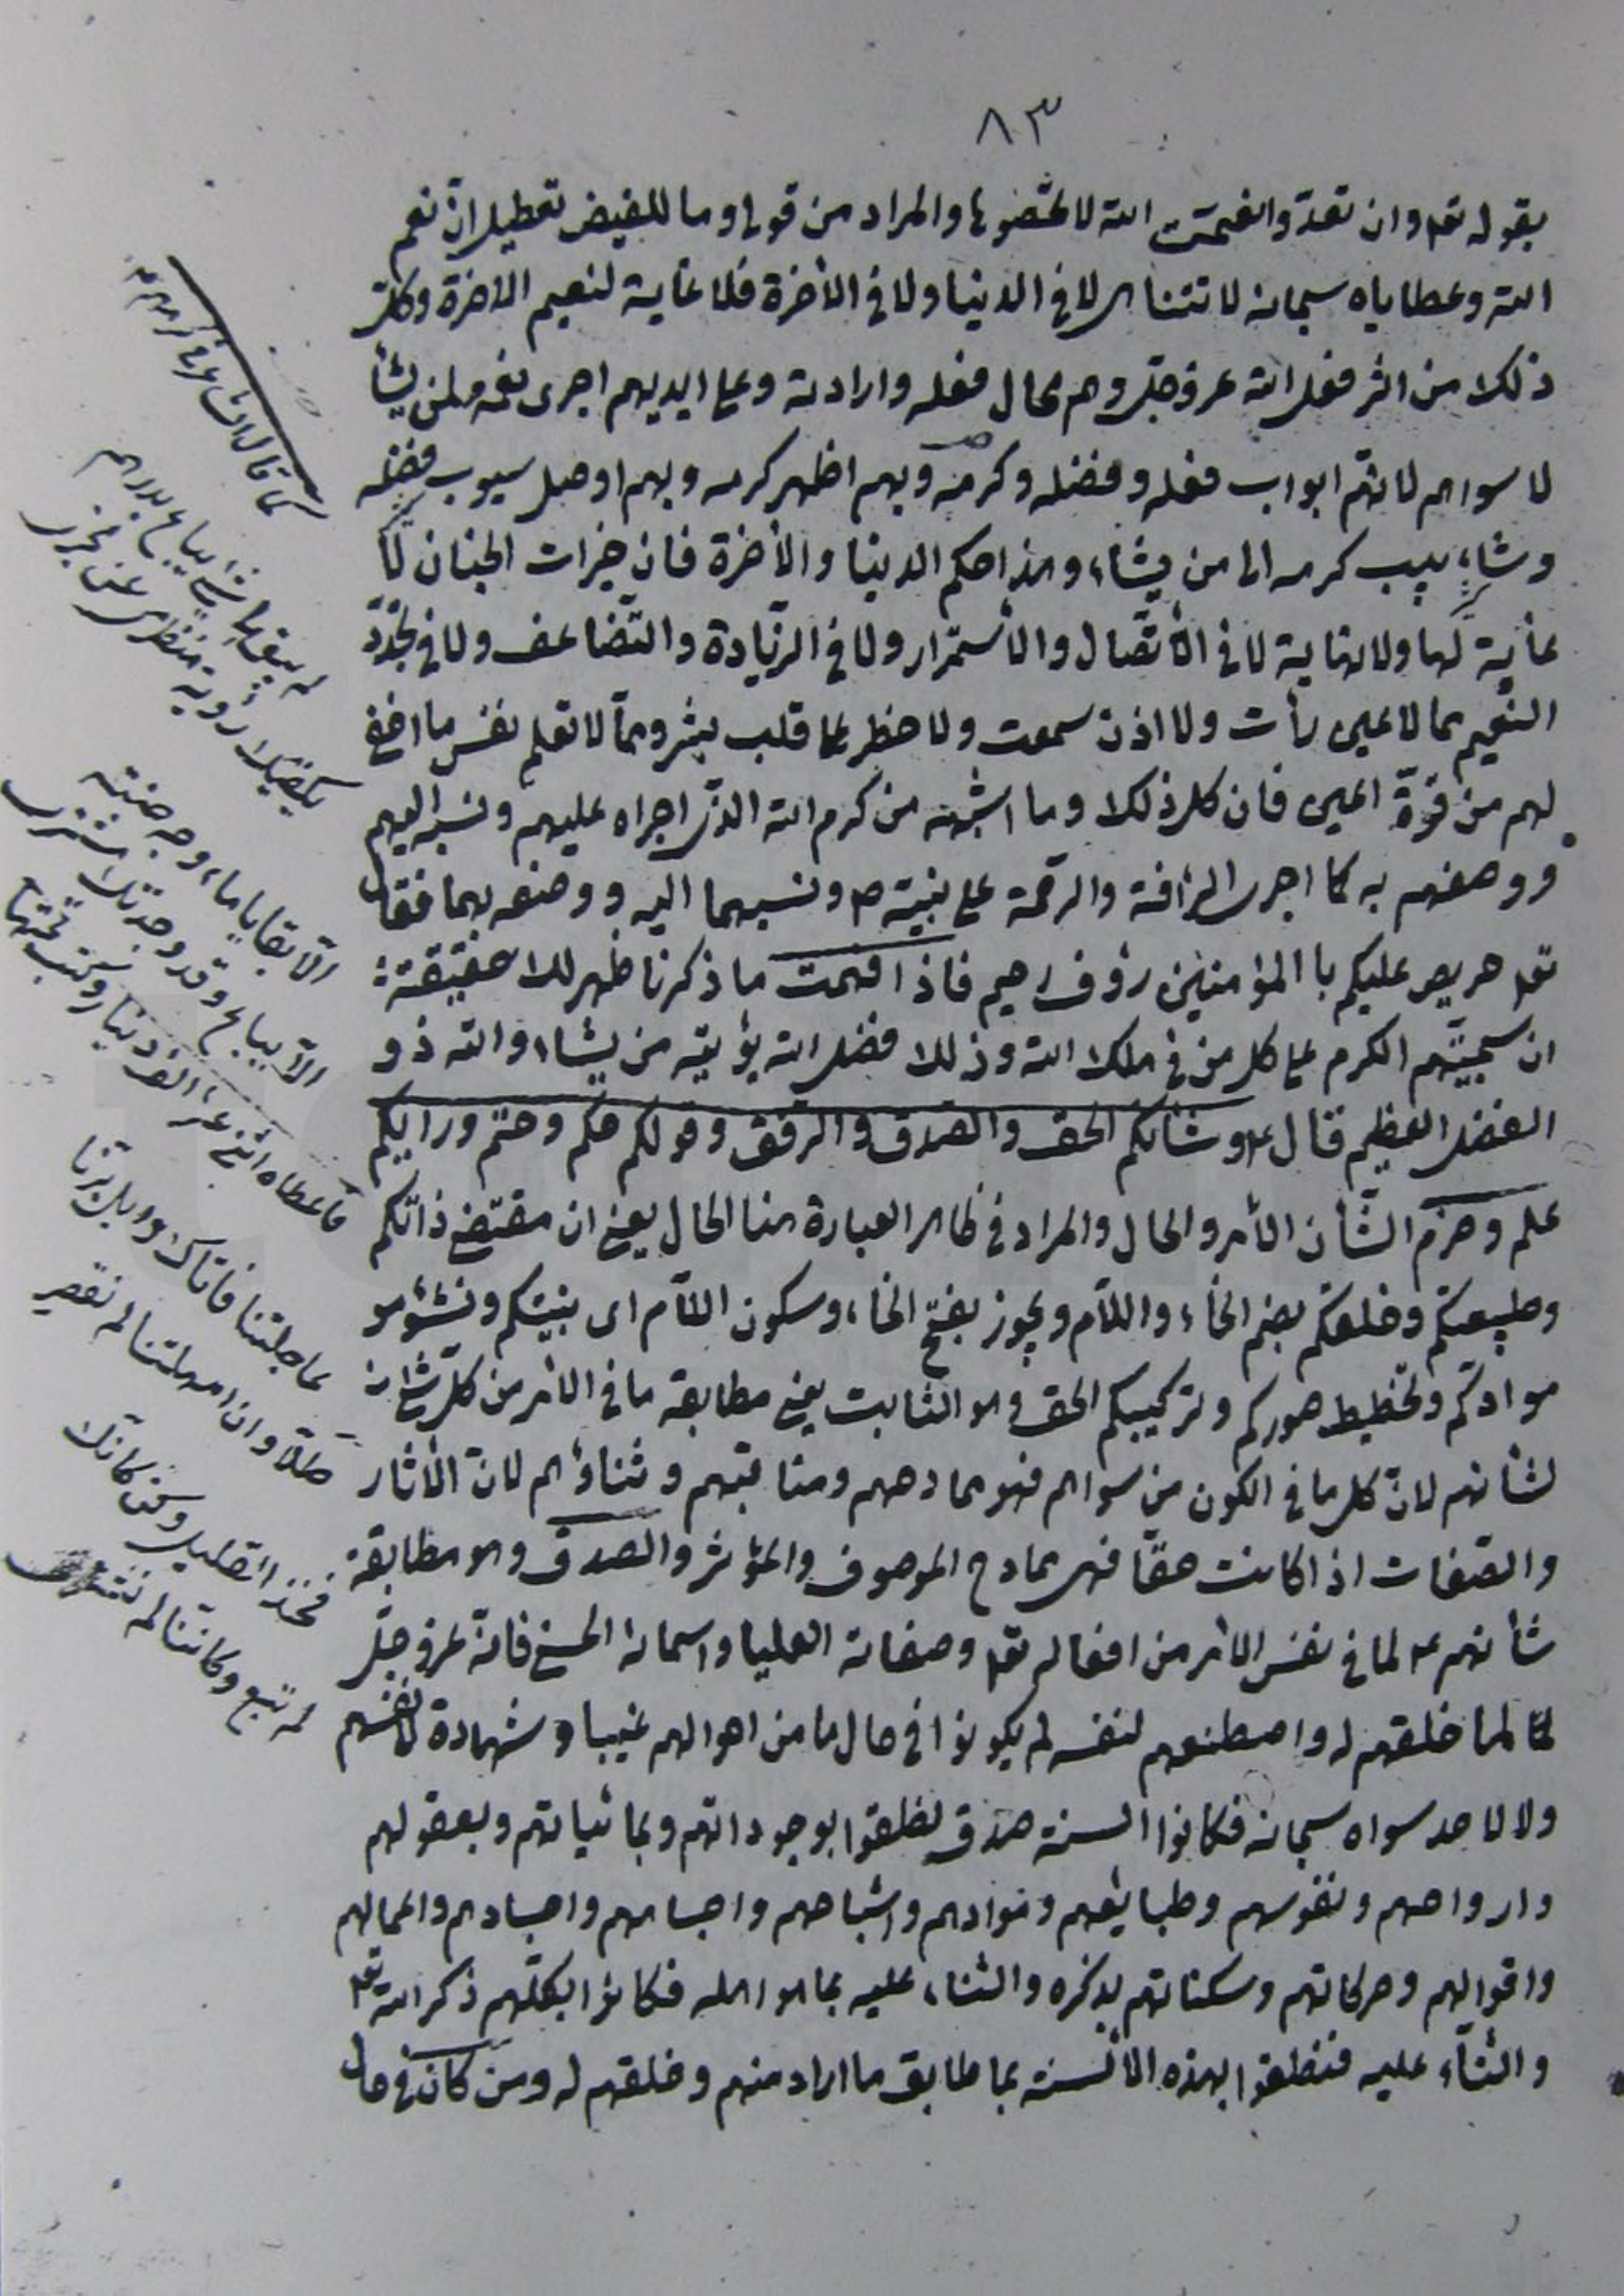 ٨٣
بقوله تعه وان تعدّوا نعمت الله لا تحصوها والمراد من قولي وما للفيض تعطيل انّ نعم
الله وعطاياه سبحانه لا تتناهى لا في الدنيا ولا في الأخرة فلا غاية لنعيم الاخرة وكلّ
ذلك من اثر فعل الله عز وجلّ وهم محال فعله وارادته وعلى ايديهم اجرى نعمه لمن يشأ
لا سواهم لانهّم ابواب فعله وفضله وكرمه وبهم اظهر كرمه وبهم اوصل سيوب فضله
وشاٰبيب كرمه الى من يشاء وهذا حكم الدينا والأخرة فان خيرات الجنان لا
غاية لها ولا نهاية لا في الأتصال والأستمرار ولا في الزيّادة والتّضاعف ولا في تجدّد
النّعيم مما لا عين رأت ولا اذن سمعت ولا خطر على قلب بشر وممّا لا تعلم نفس ما اخفي
لهم من قرّة اعين فان كل ذلك وما اشبهه من كرم الله الذّى اجراه عليهم ونسبه اليهم
ووصفهم به كما اجرى الرافة والرحمة على نبيّه ص ونسبهما اليه ووصفه بهما فقال
تعه حريص عليكم با المؤمنين رؤف رحيم فاذا فهمت ما ذكرنا ظهر لك حقيقة
ان سجيّتهم الكرم على كل من في ملك الله وذلك فضل الله يؤتيه من يشاء والله ذو
الفضل العظيم قال ع وشأنكم الحق والصّدق والرفق وقولكم حكم وحتم ورايكم
علم وحزم الشّأن الأمر والحال والمراد في ظاهر العبارة هنا الحال يعني ان مقتضى ذاتكم
وطبيعتكم وخلقكم بضم الخأء واللّام ويجوز بفتح الخأء وسكون اللّام اى بنيتكم ونشؤ هو
موادكم وتخطيط صوركم وتركيبكم الحق وهو الثابت يعني مطابقة ما في الأمر من كلّ شئ انه
لشأنهم لانّ كل ما في الكون من سواهم فهو محامدهم ومناقبهم وثناؤهم لانّ الأثار
والصّفات اذا كانت حقّا فهى محامد الموصوف والمؤثر والصدق وهو مطابقة
شأنهم ع لما في نفس الامر من افعاله تعه وصفاته العليا واسمائه الحسنى فانّه عز وجلّ
لمّا خلقهم له واصطنعهم لنفسه لم يكونوا في حال ما من احوالهم غيبا وشهادة لانفسهم
ولا لاحد سواه سبحانه فكانوا السنة صدق نطقوا بوجوداتهم وبماهياتهم وبعقولهم
وارواحهم ونفوسهم وطبايعهم وموادهم واشباحهم واجسامهم واجسادهم واعمالهم
واقوالهم وحركاتهم وسكناتهم بذكره والثناء عليه بما هو اهله فكانوا بكلّهم ذكر الله تعه
والثنأء عليه فنطقوا بهذه الألسنة بما طابق ما اراد منهم وخلقهم له ومن كان في حال
كما قال الشاعر
لم يبق لي شئ يباع بدرهم
يكفيك رؤية منظرى عن مخبرى
الّا بقايا ماء وجه صنته
الّا يباع وقد وجدتك المشترى
فأعطاه اثنى عشر الف دينار وكتب تحتها
عاجلتنا فاتاك وابل برّنا
طلّا وان امهلتنا لم نقصر
فخذ القليل وكن كانّك
لم تبع وكاننا لم نشتر